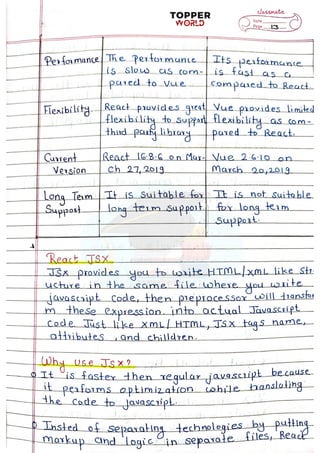 TOPPER
WORLD
classmate
Date
Page 13
Performance The performance Its performance
is slow as com- is fast as a
pared to vue. compared to React.
Flexibility React provides great Vue provides limited
flexibility to support flexibility as com-
third party library pared to React.
Current React 16.8.6 on Mar- Vue 2.6.10 on
Version ch 27, 2019 March 20, 2019.
Long Term It is suitable for It is not suitable
Support long term support. for long term
support.
React JSX
JSX provides you to write HTML/XML like str
ucture in the same file where you write
javascript code, then preprocessor will transfor
m these expression into actual Javascript
code. Just like XML/HTML, JSX tags name,
attributes, and children.
Why use JSX?
It is faster then regular javascript because
it performs optimization while translating
the code to javascript.
Insted of separating technologies by putting
markup and logic in separate files, React